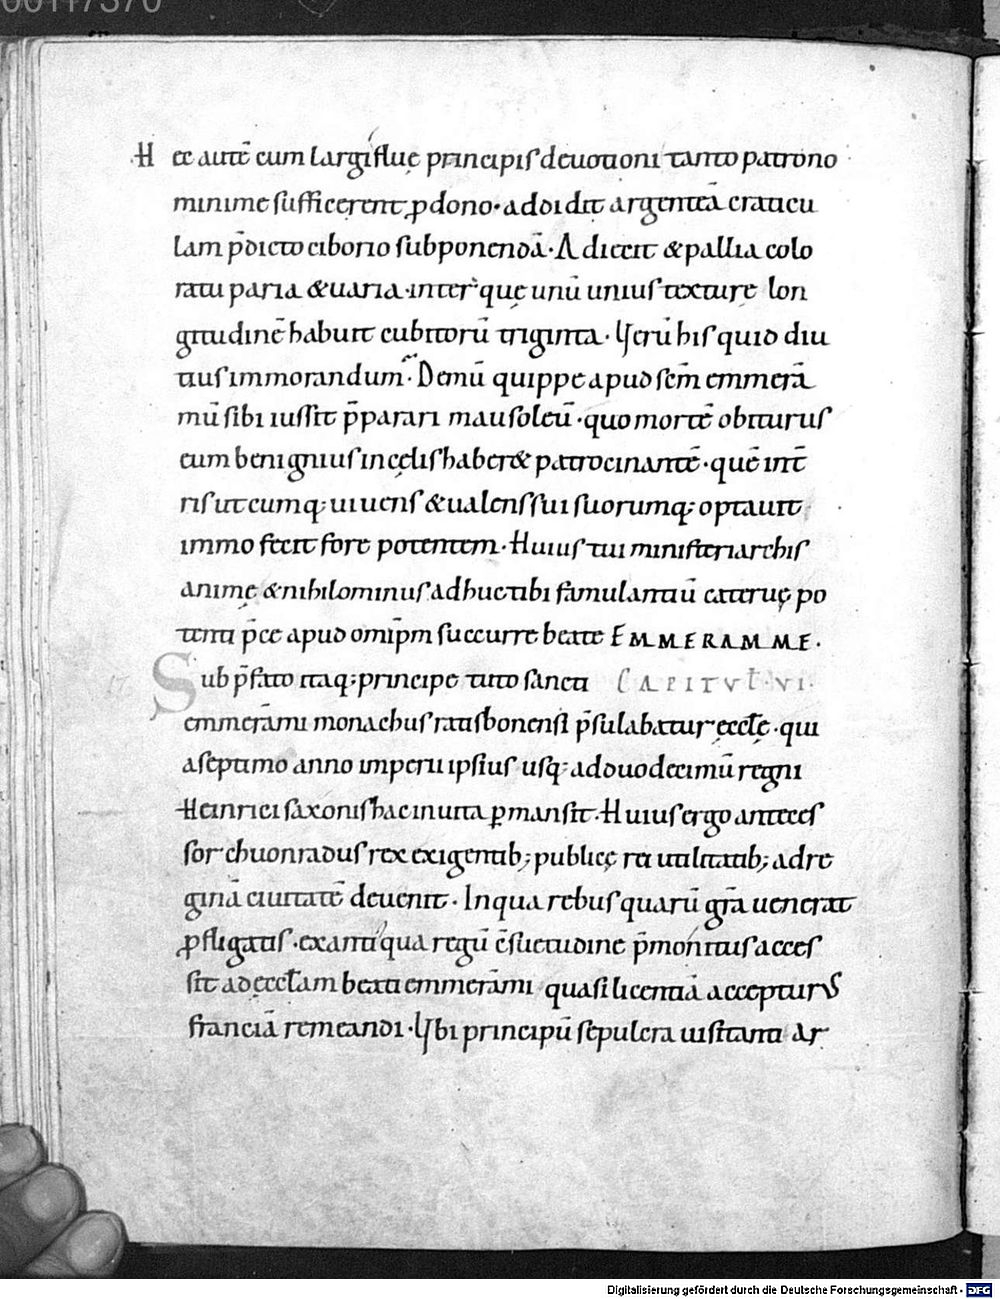 00117370
H ęc autē cum largifluę principis deuotioni tanto patrono
minime sufficerent ꝓ dono· addidit argenteā craticu
lam p̄dicto ciborio subponendā· Adiecit & pallia colo
ratu paria & uaria· inter quę unū unius texturę lon
gitudinē habuit cubitorū triginta· Verū his quid diu
tius immorandum· Demū quippe apud sc̄m emmerā
mū sibi iussit p̄parari mausoleū· quo mortē obiturus
eum benignius in cęlis haberet patrocinantē· quē int̄
ris utcumq; uiuens & ualens sui suorumq; optauit
immo fecit fore potentem· Huius tui ministeriarchis
animę & nihilominus adhuc tibi famulantiū cateruę po
tenti p̄ce apud omīpm succurre beate EMMERAMME·
Sub p̄fato itaq; principe tuto sancti CAPITVŁ·VI·
emmerāmi monachus ratisbonensi p̄sulabatur ęccłę· qui
a septimo anno imperii ipsius usq; ad duodecimū regni
Heinrici saxonis hac in uita ꝑmansit· Huius ergo anteces
sor chuonradus rex exigentib; publicę rei utilitatib; ad re
ginā ciuitatē deuenit· In qua rebus quarū gr̄a uenerat
ꝓfligatis· ex antiqua regū c̄suetudine p̄monitus acces
sit ad ęccłam beati emmerāmi quasi licentiā accepturus
franciā remeandi· Vbi principū sepulcra uisitanti ar
Digitalisierung gefördert durch die Deutsche Forschungsgemeinschaft - DFG